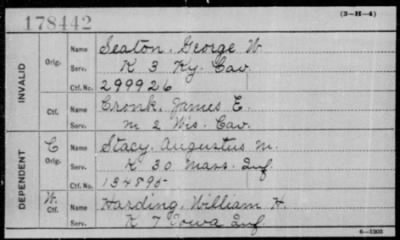 178442
(3—H—4)
INVALID
Orig. Name Seaton, George W.
Serv. K 3 Ky. Cav.
Ctf. No. 299926
Ctf. Name Cronk, James E.
Serv. M 2 Wis. Cav.
DEPENDENT
C Orig. Name Stacy, Augustus M.
Serv. K 30 Mass. Inf.
Ctf. No. 134895
W. Ctf. Name Harding, William H.
Serv. K 7 Iowa Inf
6—1903